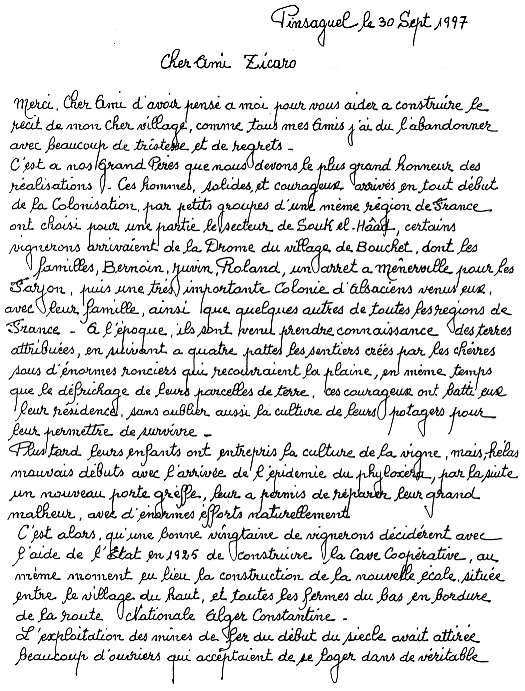 Pinsaguel le 30 Sept 1997
Cher Ami Zicaro
Merci, Cher Ami d'avoir pensé a moi pour vous aider a construire le
récit de mon Cher village, comme tous mes Amis j'ai du l'abandonner
avec beaucoup de tristesse et de regrets -
C'est a nos Grand Pères que nous devons le plus grand honneur des
réalisations - Ces hommes, solides, et courageux arrivés en tout début
de la Colonisation, par petits groupes d'une même région de France
ont choisi pour une partie le secteur de Souk el-Hâad, certains
vignerons arrivaient de la Drome du village de Bouchet, dont les
familles, Bernoin, Juvin, Roland, un arret a Ménerville pour les
Sarjon, puis une très importante Colonie d'Alsaciens venus eux,
avec leur famille, ainsi que quelques autres de toutes les regions de
France - A l'époque, ils sont venu prendre connaissance des terres
attribuées, en suivant a quatre pattes les sentiers créés par les chèvres
sous d'énormes ronciers qui recouvraient la plaine, en même temps
que le défrichage de leurs parcelles de terre, ces courageux ont batti eux
leur résidence, sans oublier aussi la culture de leurs potagers pour
leur permettre de survivre -
Plus tard leurs enfants ont entrepris la culture de la vigne, mais, hélas
mauvais débuts avec l'arrivée de l'épidemie du phyloxera, par la suite
un nouveau porte greffe, leur a permis de réparer leur grand
malheur, avec d'énormes éfforts naturellement
C'est alors, qu'une bonne vingtaine de vignerons décidérent avec
l'aide de l'État en 1925 de construire la Cave Coopérative, au
même moment eu lieu la construction de la nouvelle école, située
entre le village du haut, et toutes les fermes du bas en bordure
de la route Nationale Alger Constantine -
L'exploitation des mines de Fer du début du siecle avait attirée
beaucoup d'ouvriers qui accéptaient de se loger dans de véritable